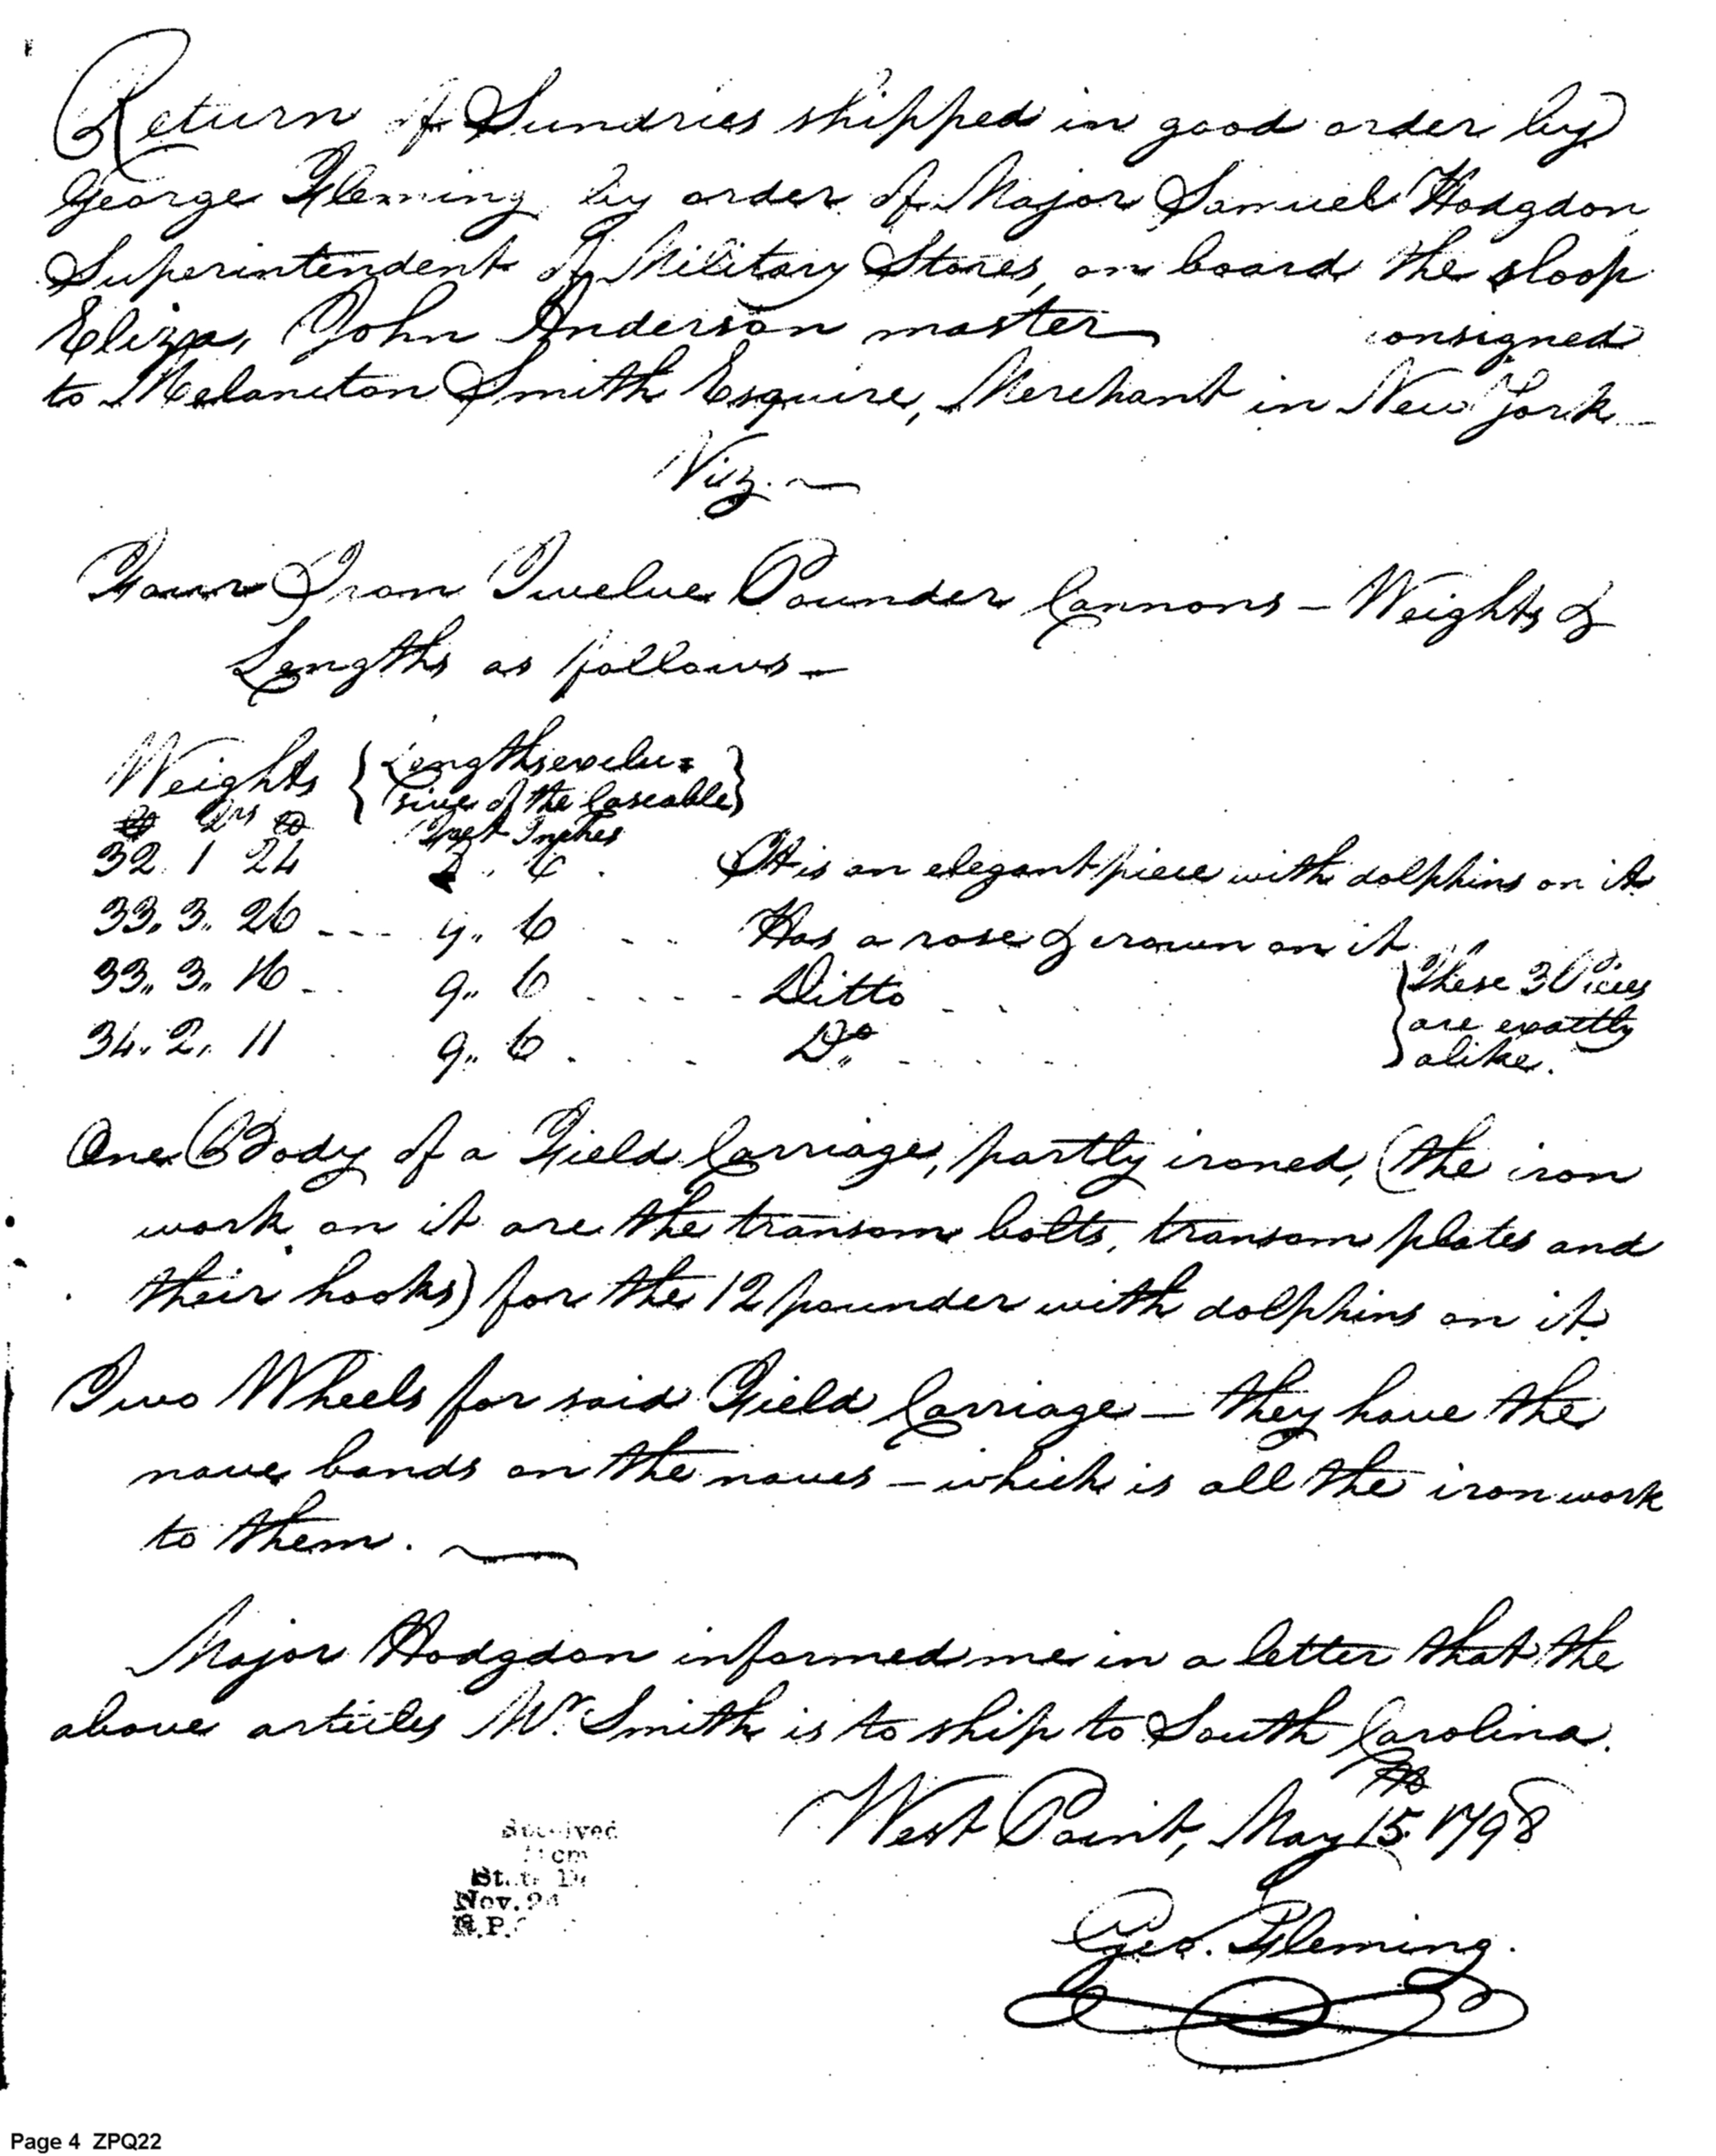 Return of Sundries shipped in good order by
George Fleming by order of Major Samuel Hodgdon
Superintendent of Military Stores, on board the sloop
Eliza, John Anderson master consigned
to Melancton Smith Esquire, Merchant in New York
Viz. ~
Four Iron Twelve Pounder Cannons – Weights &
Lengths as follows –
Weights { Lengths exclu= }
{ sive of the Cascable }
Qrs Feet Inches
32. 1 24 It is an elegant piece with dolphins on it
33. 3. 26 --- 9. 6 -- Has a rose & crown on it
33. 3. 16 -- 9. 6 ---- Ditto { These 3 Pieces
34. 2. 11 9. 6 Do { are exactly
{ alike.
One Body of a Field Carriage, partly ironed, (the iron
work on it are the transom bolts, transom plates and
their hooks) for the 12 pounder with dolphins on it.
Two Wheels for said Field Carriage – they have the
nave bands on the naves – which is all the iron work
to them. ~
Major Hodgdon informed me in a letter that the
above articles Mr. Smith is to ship to South Carolina.
West Point, May 15th 1798
Geo. Fleming.
Received
from
State
Nov. 24
Page 4 ZPQ22